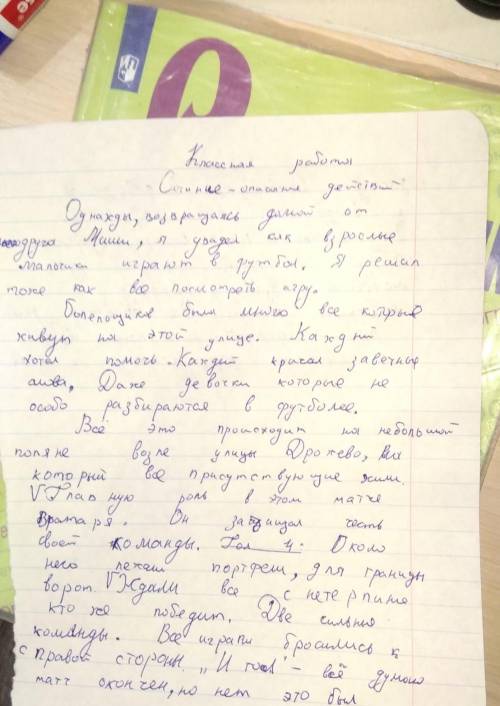 Классная работа
Сочиние-описания действий
Однажды, возвращаясь домой от
друга Миши, я увидел как взрослые
мальчики играют в футбол. Я решил
тоже как все посмотреть игру.
Болельщиков были много все которые
живут на этой улице. Каждый
хотел помочь. Каждый красал заветные
слова, Даже девочки которые не
особо разбираются в футболее.
Всё это происходит на небольшой
поляне возле улицы Дрожево,
который все присутствующие жили.
V Главную роль в этом матче
Вратаря. Он защищал честь
своей команды. Около
него лежал портфель, для границы
ворот. V Ждали все с нетерпине
кто же победит. Две сильные
команды. Все играли бросились к
с правой стороны. „И гол" - всё думали
матч окончен, но нет это был